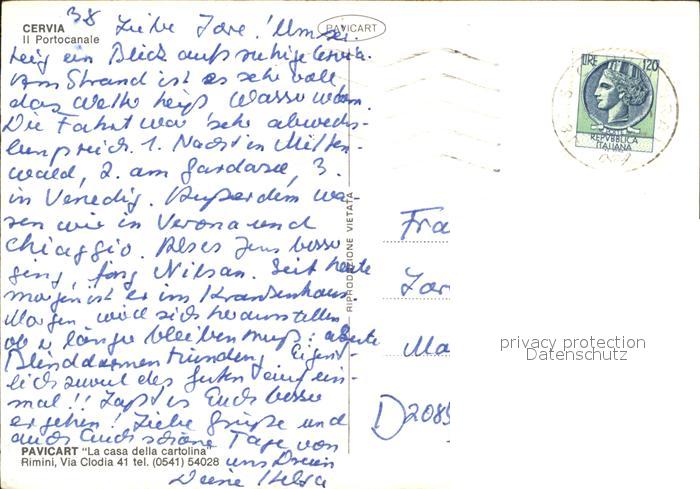 CERVIA
Il Portocanale
38 Liebe Tore! Umsei-
tig ein Blick aufs ruhige Cervia.
am Strand ist es sehr voll
das Wetter heiß Wasser warm.
Die Fahrt war sehr abwechs-
lungsreich. 1. Nacht in Mitten-
wald, 2. am Gardasee, 3.
in Venedig. Außerdem wa-
ren wir in Verona und
Chiaggio. Als es Jens besser
ging, fing Nilsan. Seit heute
morgen ist er im Krankenhaus.
Morgen wird sich herausstellen
ob er länger bleiben muß: akute
Blinddarmentzündung. Eigent-
lich zuviel des Guten auf ein-
mal!! Laßt es Euch besser
ergehen! Liebe Grüße und
auch Euch schöne Tage von
uns Dreien
Deine Helga
PAVICART "La casa della cartolina"
Rimini, Via Clodia 41 tel. (0541) 54028
PAVICART
RIPRODUZIONE VIETATA
LIRE 120
REPVBBLICA
ITALIANA
Fra
Ma
D 2085
privacy protection
Datenschutz